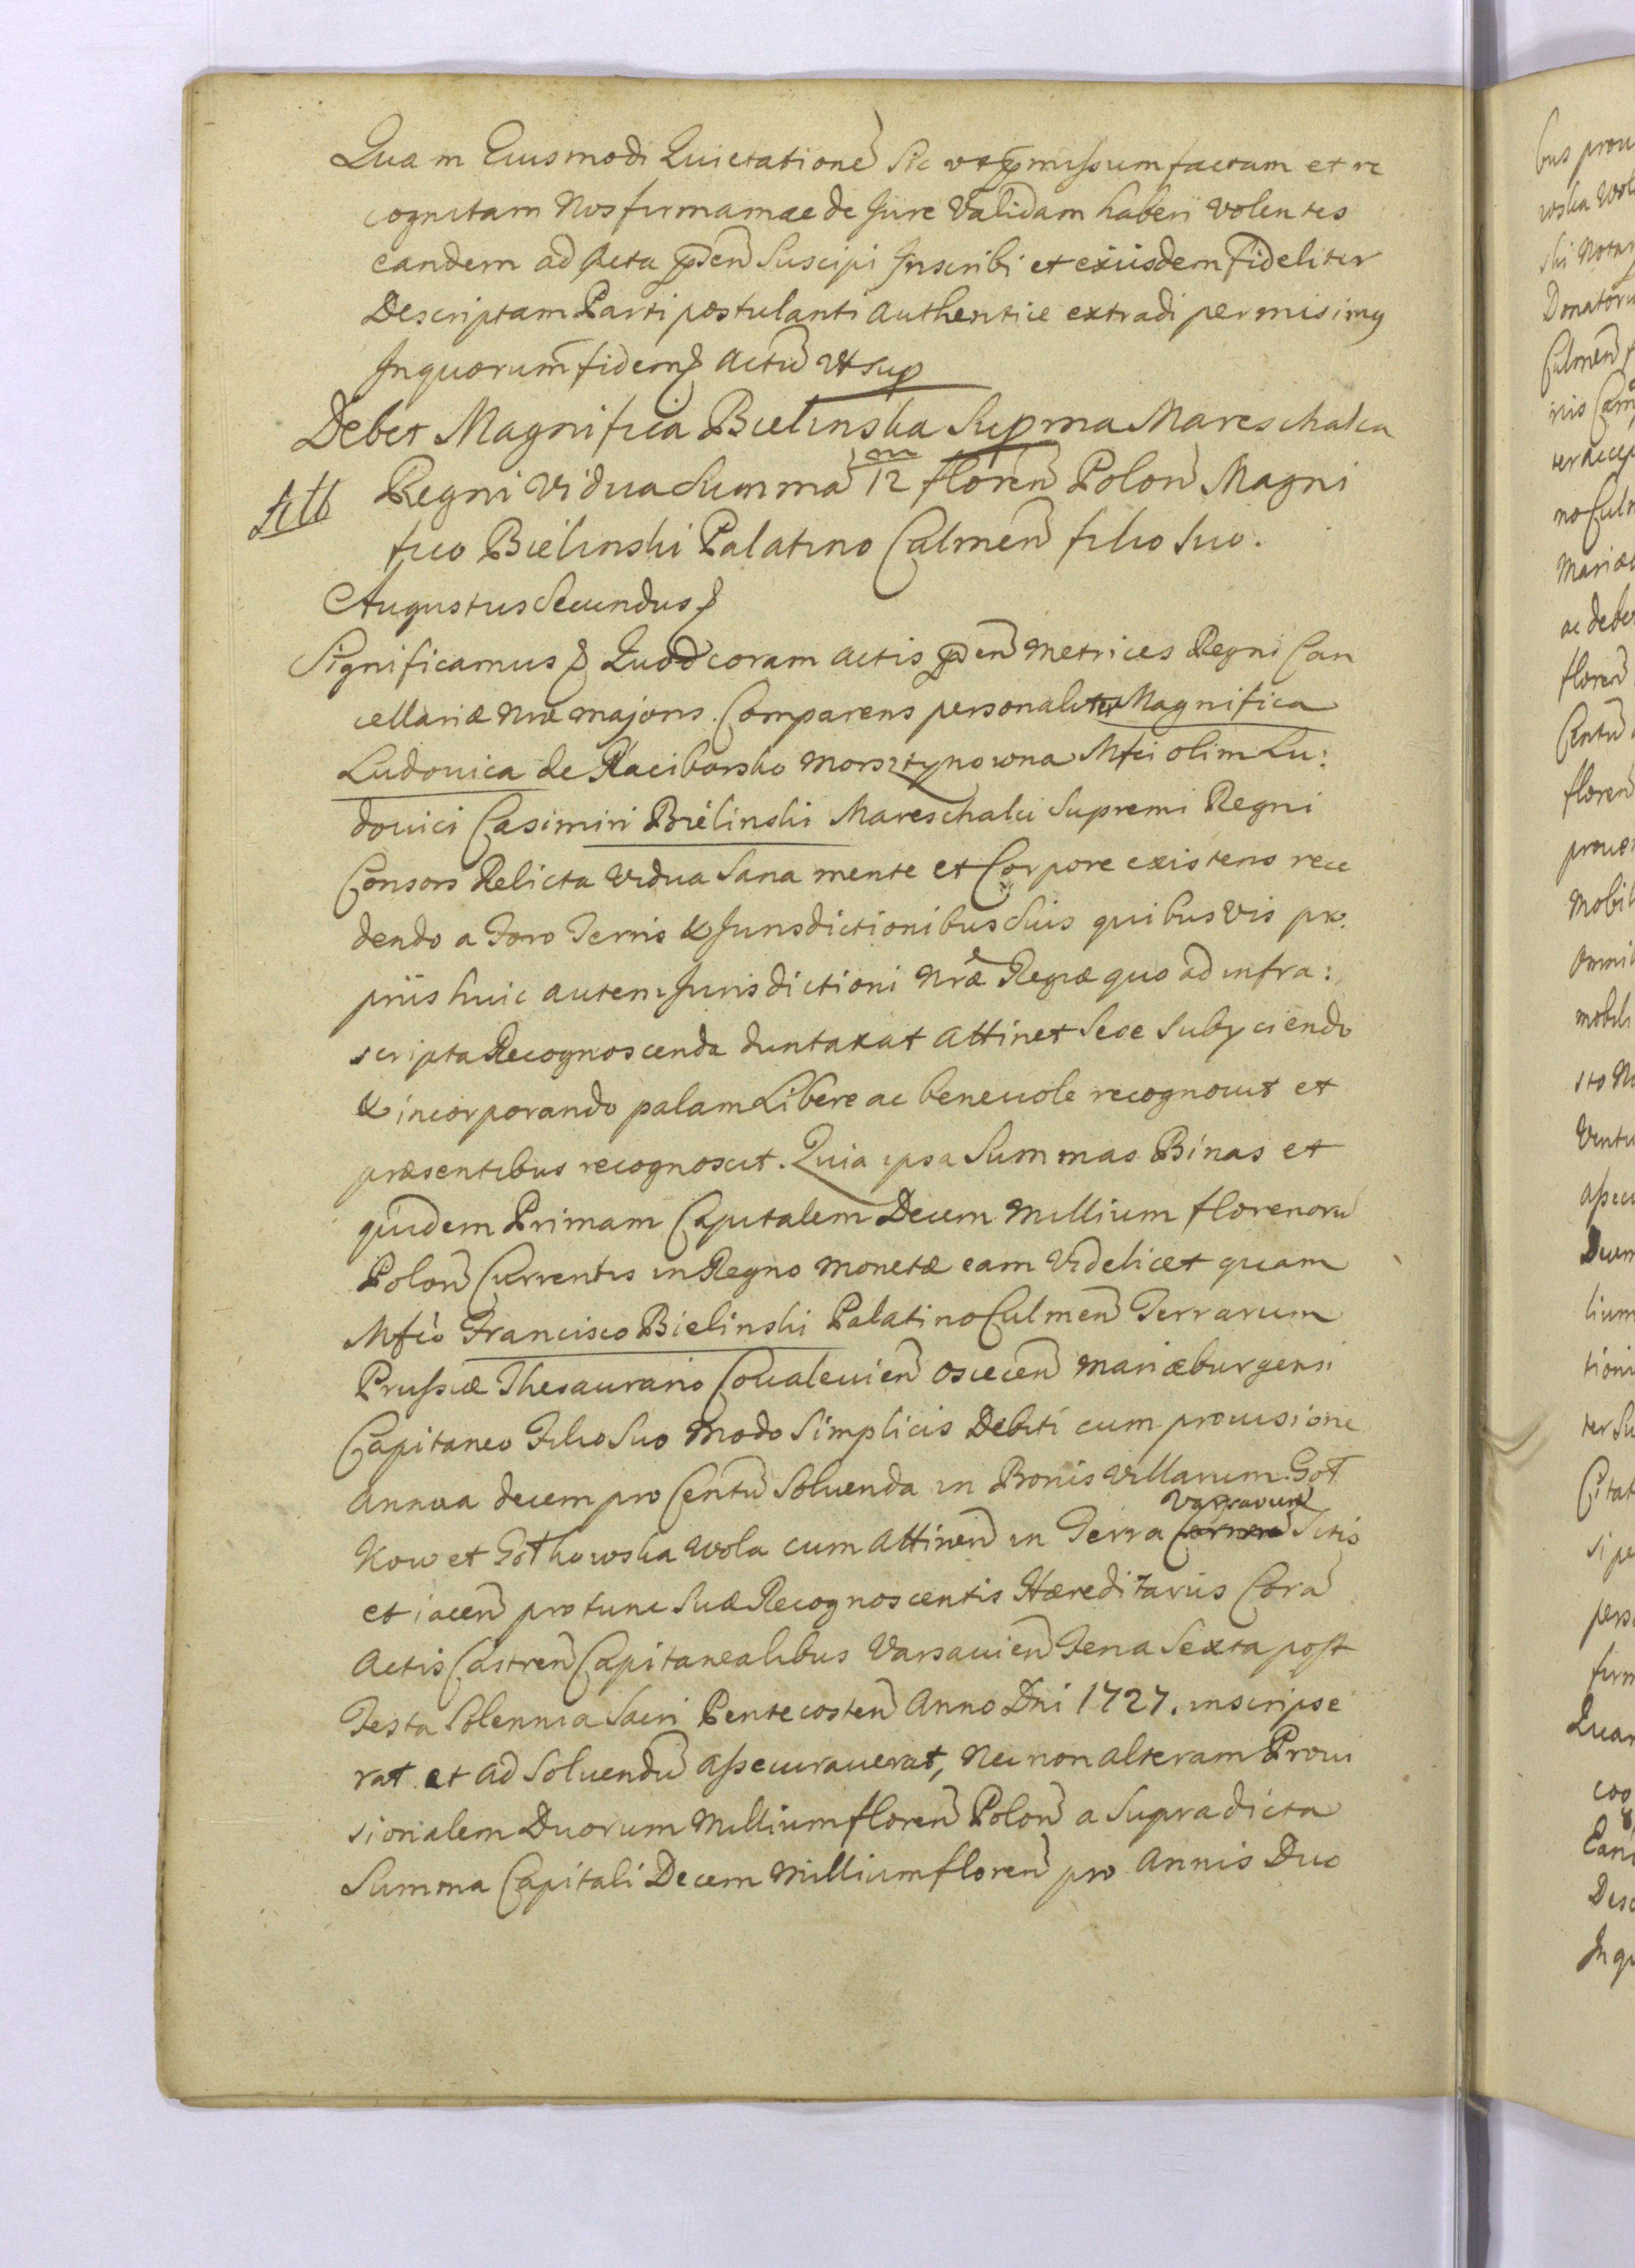 Quam Eiusmodi Quietatione Sic ut pmissum factam et re
cognitam Nos firmam ac de Jure Validam haberi volentes
eandem ad Acta psen Suscipi Inscribi et exiisdem fideliter
Descriptam Parti postulanti Authentice extradi permisimus
In quorum fidem Actu ut sup
Debet Magnifica Bielinska Suprma Mareschalca
Regni Vidua Summa 12 m floren Polon Magni
fico Bielinski Palatino Culmen filio Suo.
Augustus Secundus
Significamus Quod coram Actis psen Metrices Regni Can
cellariæ Nræ majoris. Comparens personaliter Magnifica
Ludovica de Raciborsko Morsztynowna Mfci olim Lu:
dovici Casimiri Bielinski Mareschalci Supremi Regni
Consors Relicta Vidua Sana mente et Corpore existens rece
dendo a Foro Terris & Jurisdictionibus Suis quibus vis pro:
priis huic autem Jurisdictioni Nræ Regiæ quo ad infra:
scripta Recognoscenda duntaxat attinet Sese Subyciendo
& incorporando palam Libere ac benevole recognovit et
præsentibus recognoscit. Quia ipsa Summas Binas et
quidem Primam Capitalem Decem Millium florenoru
Polon Currentis in Regno Monetæ eam Videlicet quam
Mfco Francisco Bielinski Palatino Culmen Terrarum
Prussiæ Thesaurario Covalevien Osiecen Mariæburgensi
Capitaneo Filio Suo Modo Simplicis Debiti cum provisione
Annua decem pro Centu Solvenda in Bonis Villarum Got
Kow et Gothowska Wola cum Attinen in Terra Varsavien Sitis
et iacen pro tunc Suæ Recognoscentis Hæreditariis Cora
Actis Castren Capitanealibus Varsavien Feria Sexta post
Festa Solennia Sacri Pentecosten Anno Dni 1727. inscripse
rat et ad Solvendu Assecuraverat, Nec non alteram Provi
sionalem Duorum Millium floren Polon a Supradicta
Summa Capitali Decem Millium floren pro Annis Duo